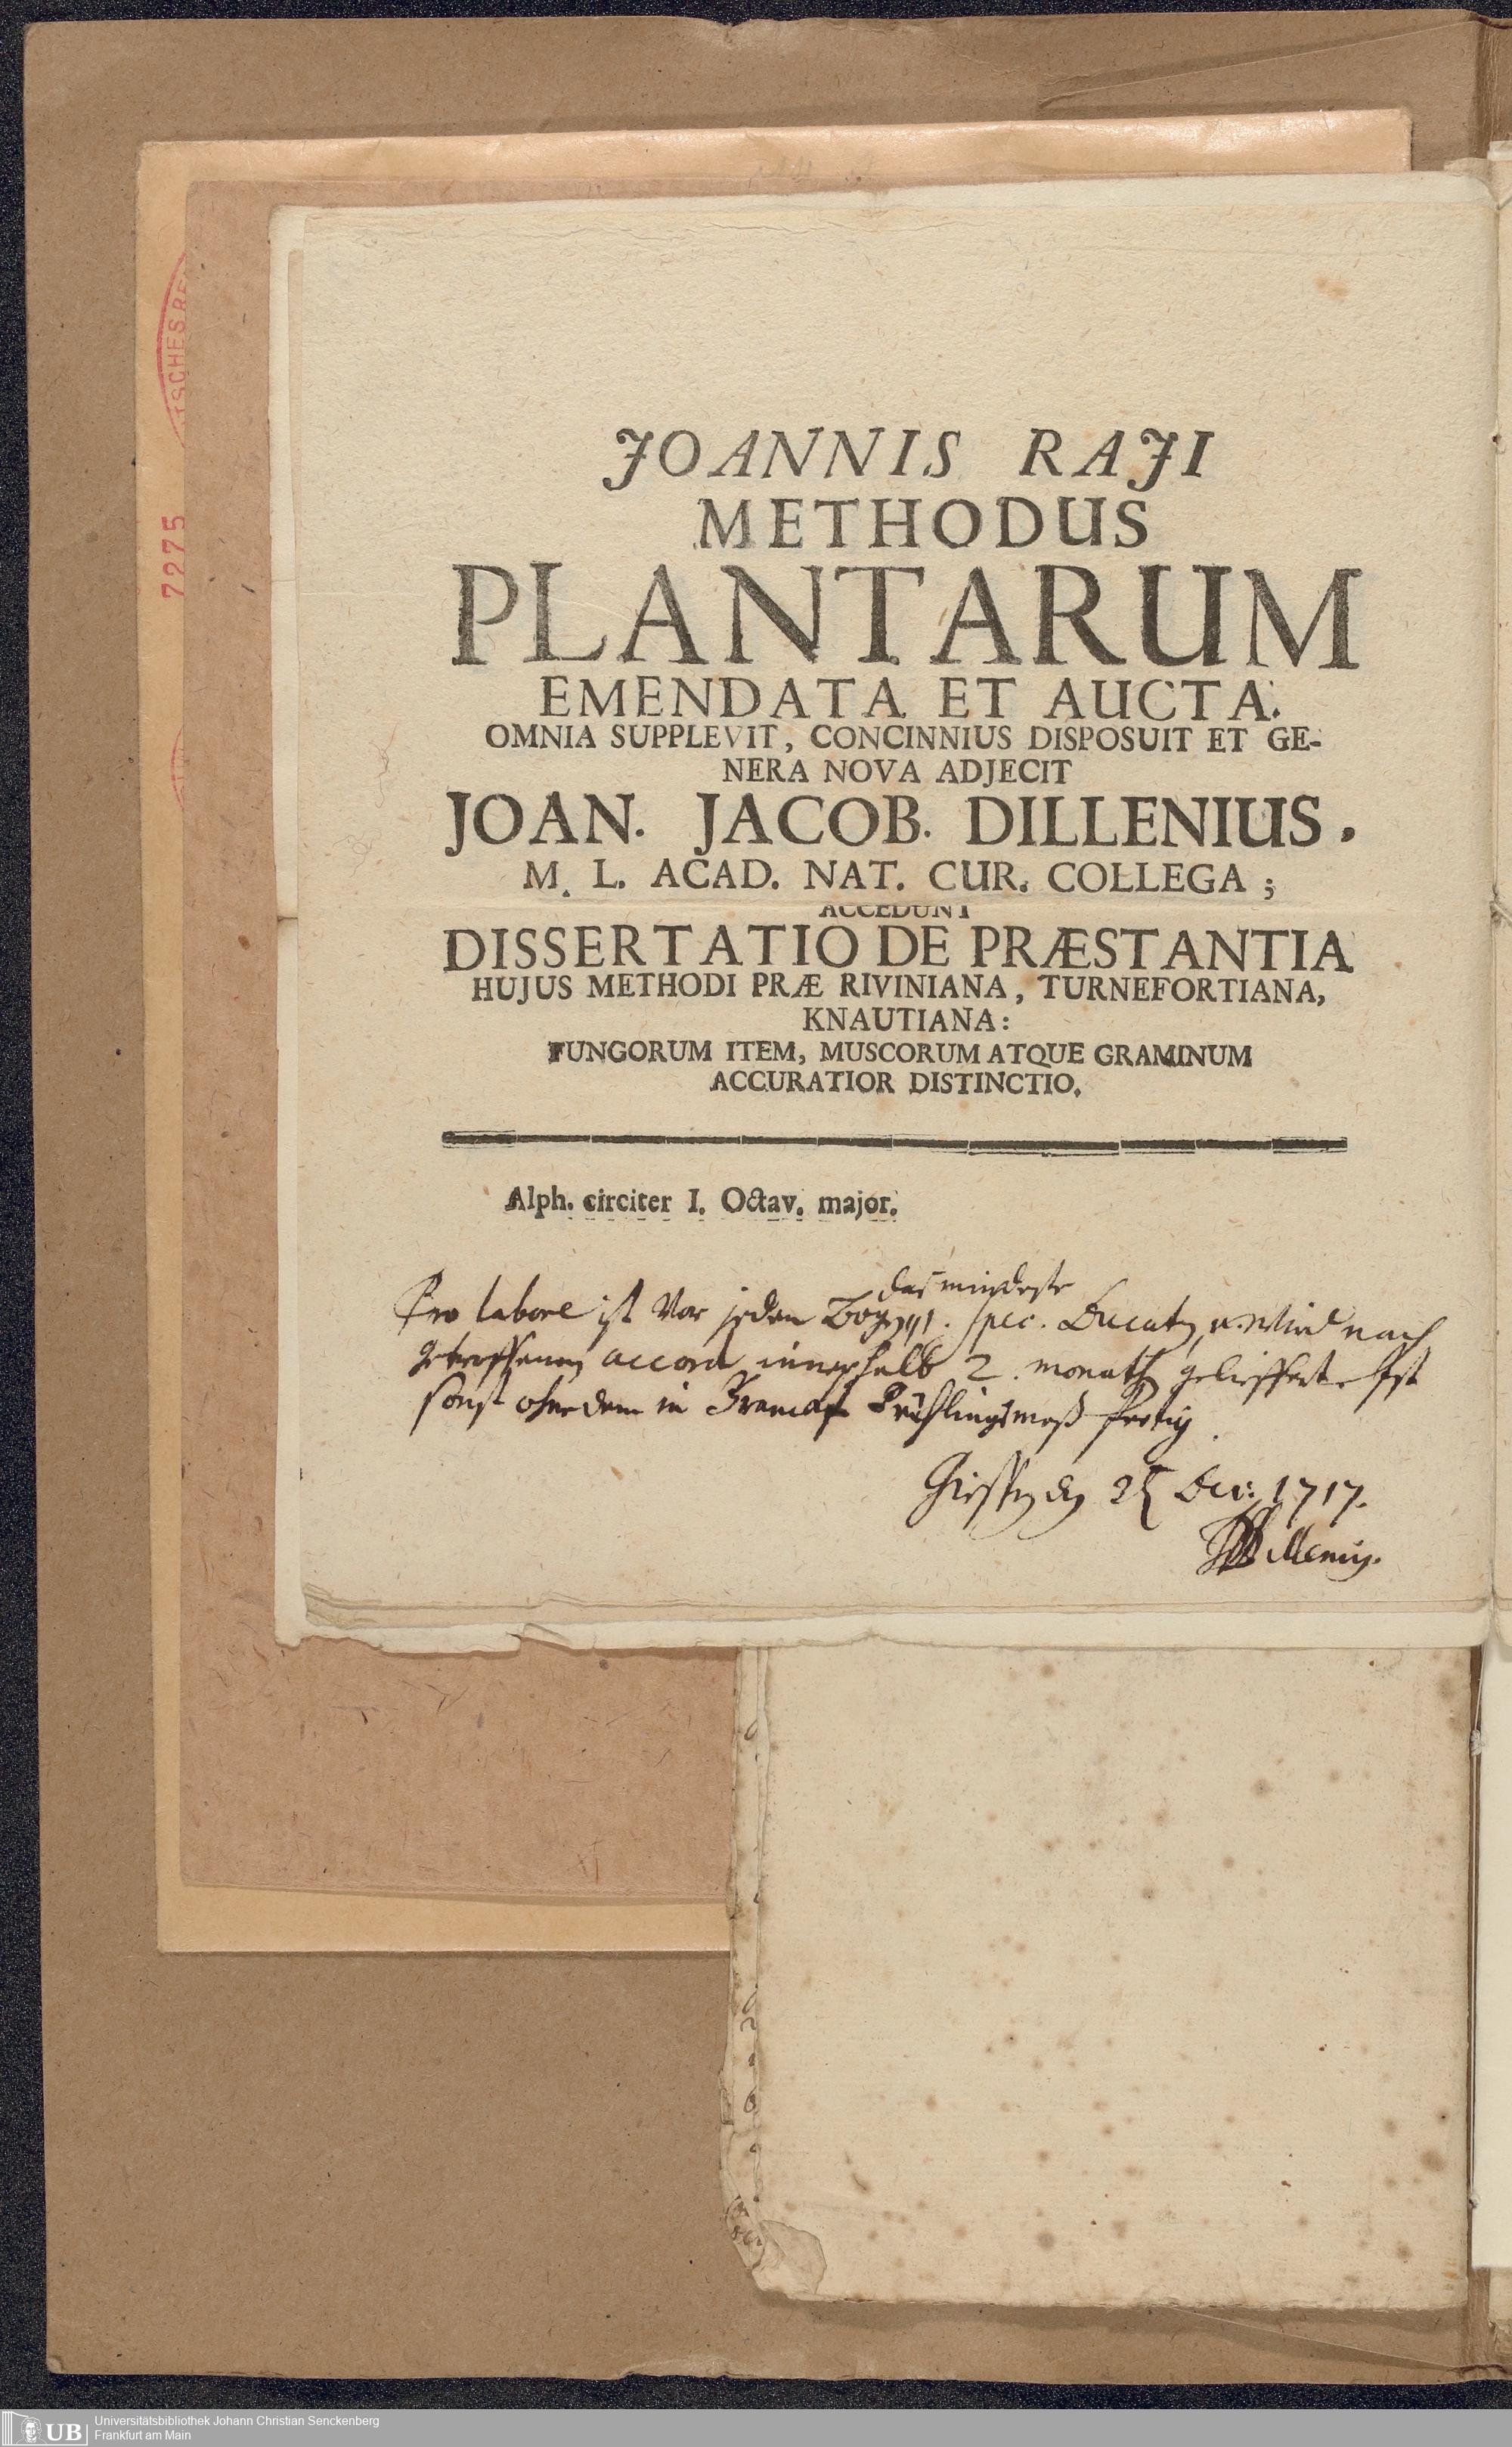 TSCHES RE
7275
JOANNIS RAJI
METHODUS
PLANTARUM
EMENDATA ET AUCTA.
OMNIA SUPPLEVIT, CONCINNIUS DISPOSUIT ET GE-
NERA NOVA ADJECIT
JOAN. JACOB. DILLENIUS.
M. L. ACAD. NAT. CUR. COLLEGA;
ACCEDUNT
DISSERTATIO DE PRÆSTANTIA
HUJUS METHODI PRÆ RIVINIANA, TURNEFORTIANA,
KNAUTIANA:
FUNGORUM ITEM, MUSCORUM ATQUE GRAMINUM
ACCURATIOR DISTINCTIO.
Alph. circiter I. Octav. major.
das mindeste
Pro labore ist vor jeden Bogen 1. spec. Ducaten u. wird nach
getroffenem accord innerhalb 2. monath gelieffert. Ist
sonst ohne dem in Frühlingsmeß fertig.
Giessen den Dec: 1717.
JJDillenius.
UB
Universitätsbibliothek Johann Christian Senckenberg
Frankfurt am Main